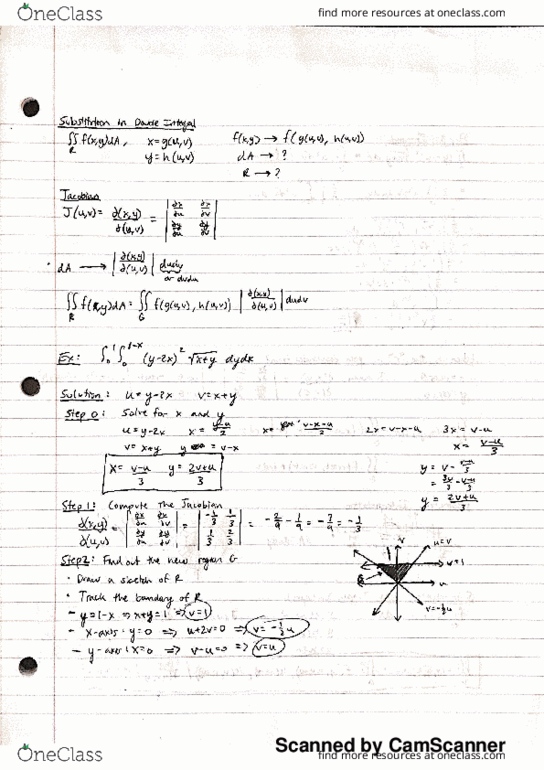 OneClass
find more resources at oneclass.com
Substitution in Double Integral
∬_R f(x,y)dA, x=g(u,v) f(x,y) → f(g(u,v), h(u,v))
y=h(u,v) dA → ?
R → ?
Jacobian
J(u,v) = ∂(x,y)/∂(u,v) = |∂x/∂u ∂x/∂v; ∂y/∂u ∂y/∂v|
dA → |∂(x,y)/∂(u,v)| dudv
or dvdu
∬_R f(x,y)dA = ∬_G f(g(u,v), h(u,v)) |∂(x,y)/∂(u,v)| dudv
Ex: ∫₀¹∫₀^(1-x) (y-2x)² √(x+y) dydx
Solution: u=y-2x v=x+y
Step 0: Solve for x and y
u=y-2x x= (y-u)/2 x= (v-x-u)/2 2x=v-x-u 3x=v-u
v=x+y y = v-x x= (v-u)/3
x= (v-u)/3 y= (2v+u)/3
y= v- (v-u)/3
= 3v/3 - (v-u)/3
y= (2v+u)/3
Step 1: Compute the Jacobian
∂(x,y)/∂(u,v) = |∂x/∂u ∂x/∂v; ∂y/∂u ∂y/∂v| = |-1/3 1/3; 1/3 2/3| = -2/9 - 1/9 = -3/9 = -1/3
Step 2: Find out the new region G
· Draw a sketch of R
· Track the boundary of R
- y=1-x ⇒ x+y=1 ⇒ v=1
- x-axis: y=0 ⇒ u+2v=0 ⇒ v=-1/2 u
- y-axis: x=0 ⇒ v-u=0 ⇒ v=u
v
u=v
v=1
G
u
v=-1/2 u
Scanned by CamScanner
OneClass
find more resources at oneclass.com